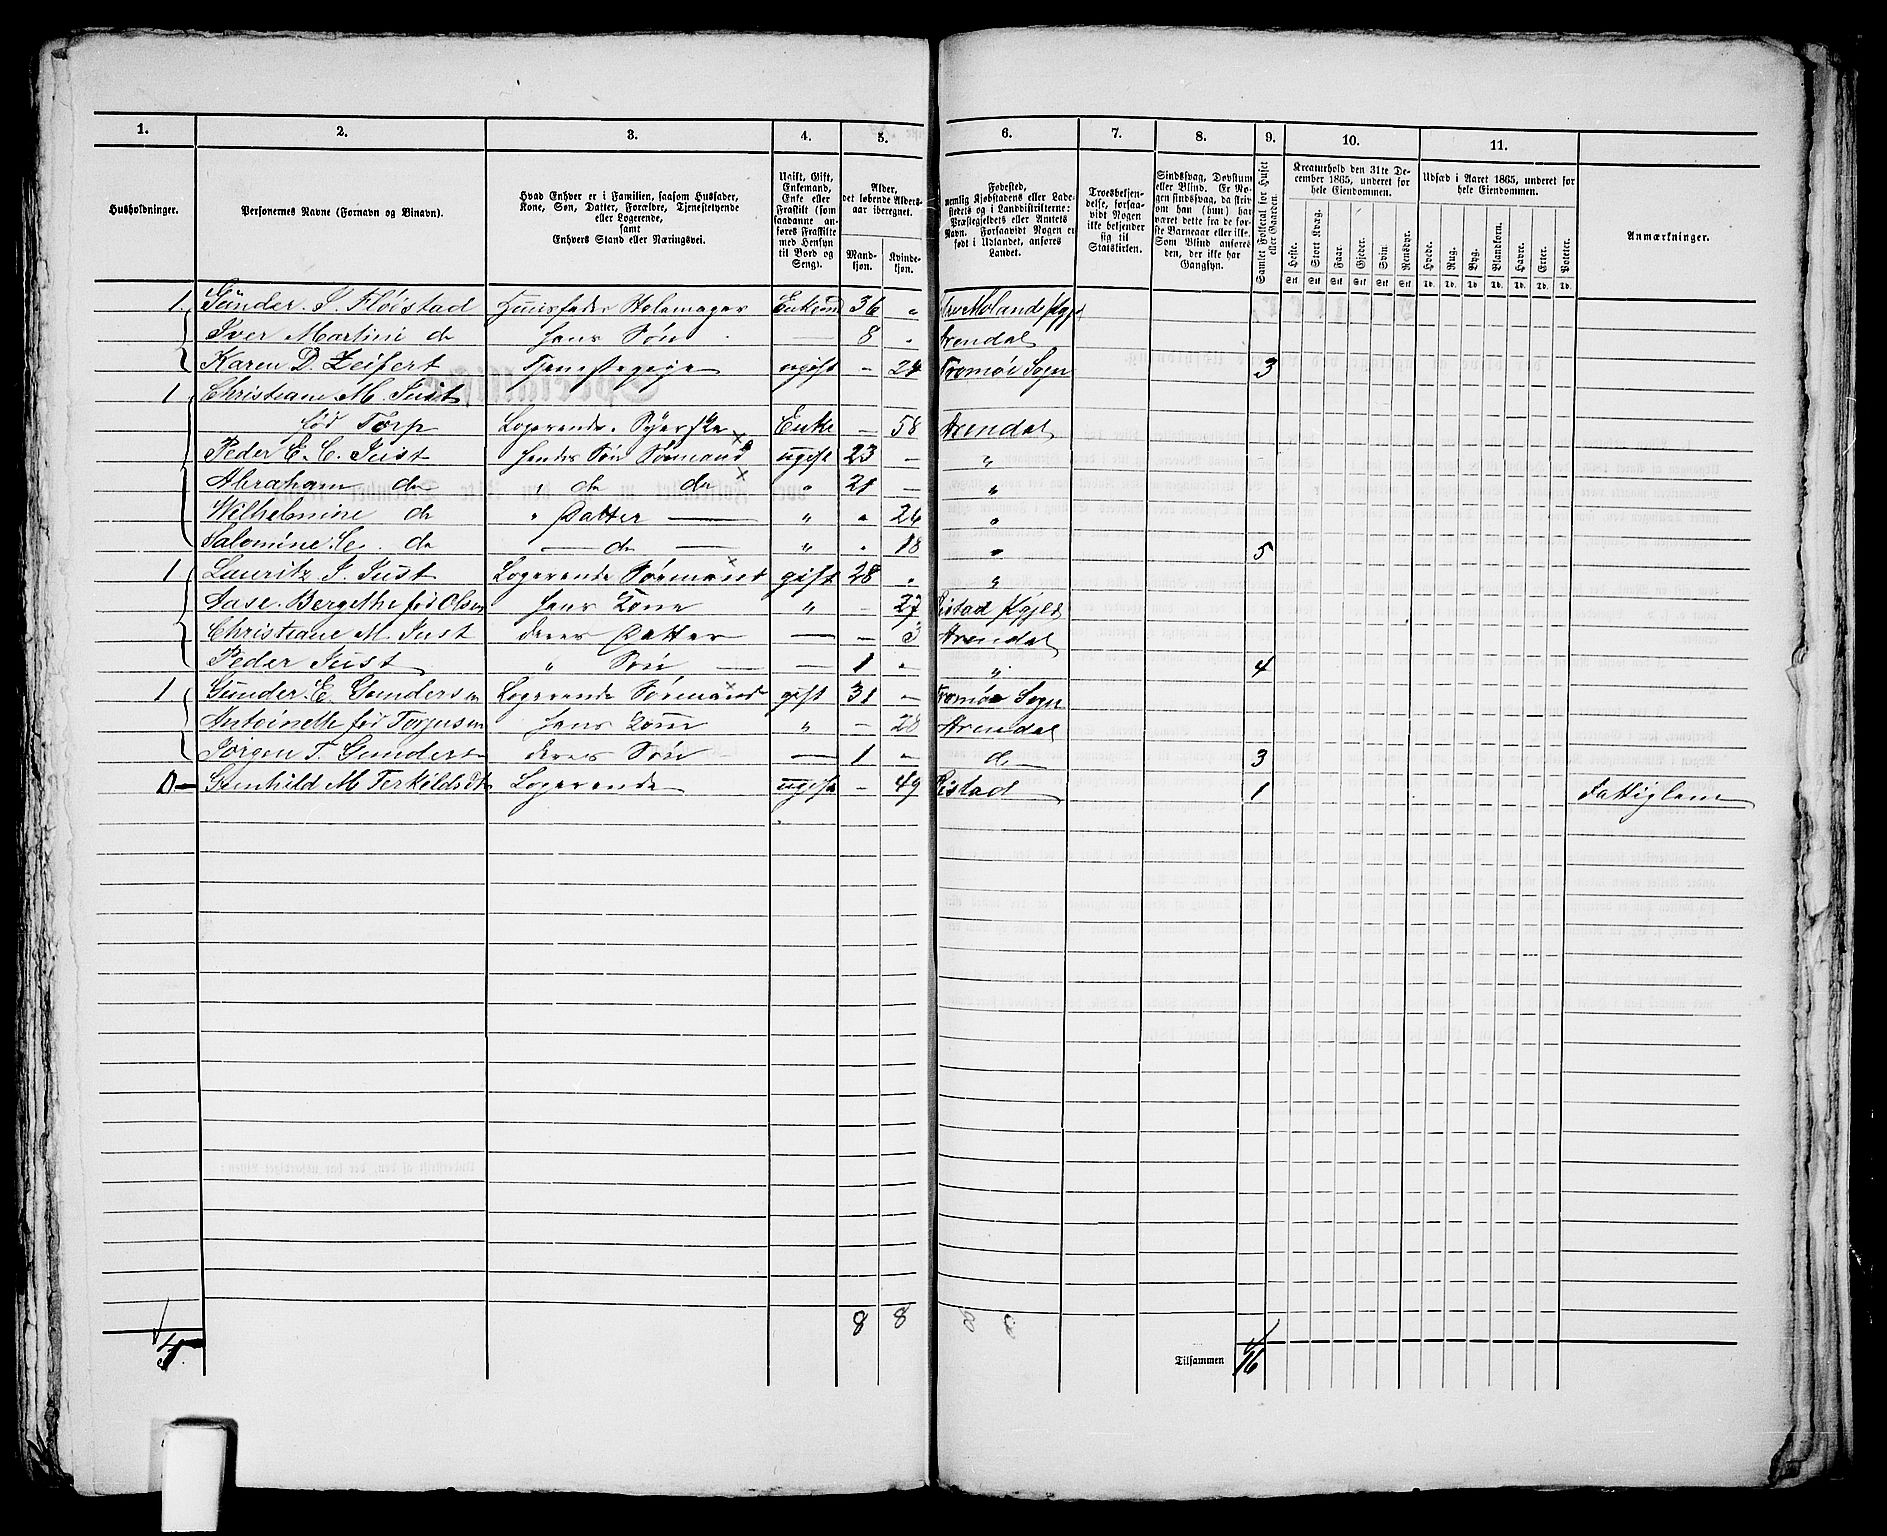 1. 2. 3. 4. 5. 6. 7. 8. 9. 10. 11.
Husholdninger.
Personernes Navne (Fornavn og Binavn).
Hvad Enhver er i Familien, saasom Husfader, Kone, Søn, Datter, Forældre, Tjenestetyende eller Logerende, samt Enhvers Stand eller Næringsvei.
Ugift, Gift, Enkemand, Enke eller Fraskilt (som saadanne anføres Fraskilte med Hensyn til Bord og Seng).
Alder, det løbende Aldersaar iberegnet.
Mandkjøn. Kvindekjøn.
Fødested, nemlig Kjøbstadens eller Ladestedets og i Landdistrikterne: Præstegjeldets eller Amtets Navn. Forsaavidt Nogen er født i Udlandet, anføres Landet.
Troesbekjendelse, forsaavidt Nogen ikke bekjender sig til Statskirken.
Sindssvag, Døvstum eller Blind. Er Nogen sindssvag, da skrives om han (hun) har været dette fra de første Barneaar eller ikke. Som Blind anføres den, der ikke har Gangsyn.
Samlet Folketal for Huset eller Gaarden.
Kreaturhold den 31te December 1865, underet for hele Eiendommen.
Heste. Stort Kvæg. Faar. Gjeder. Svin. Rensdyr.
Stk Stk Stk Stk Stk Stk
Udsæd i Aaret 1865, underet for hele Eiendommen.
Hvede. Rug. Byg. Blandkorn. Havre. Erter. Poteter.
Td. Td. Td. Td. Td. Td. Td.
Anmærkninger.
1. Gunder. S. Fløistad Huusfader Enkem 36 " Molands Pgj
Iver Martini do Hans Søn 8 " Arendal
Karen D. Zeifert Tjenestepige ugift – 24 Tromøe Sogn 3
1 Christiane M. Just
fød Torp Logerende. Syerske Enke – 58 Arendal
Peder E. C. Just Hendes Søn Sømand ugift 23 – "
Abraham do " do do " 21 "
Wilhelmine do " Datter — " " 26 "
Salomine C. do — do — " " 18 " 5
1 Lauritz J. Just Logerende Sømand gift 28 " "
Aase. Bergethe fød Olsen Hans Kone " – 27 Øiestad Pgjeld
Christiane M. Just deres Datter — – 3 Arendal
Peder Just " Søn — — 1 " " 4
1 Gunder. E. Gundersen Logerende Sømand gift 31 – Tromøe Sogn
Antoinette fød Torjusen Hans Kone " – 28 Arendal
Jørgen T. Gunders deres Søn — 1 – do 3
0 – Gunhild M Terkeldsdtr Logerende ugift – 49 Øiestad 1 Fattiglem
8 8
4 Tilsammen 16